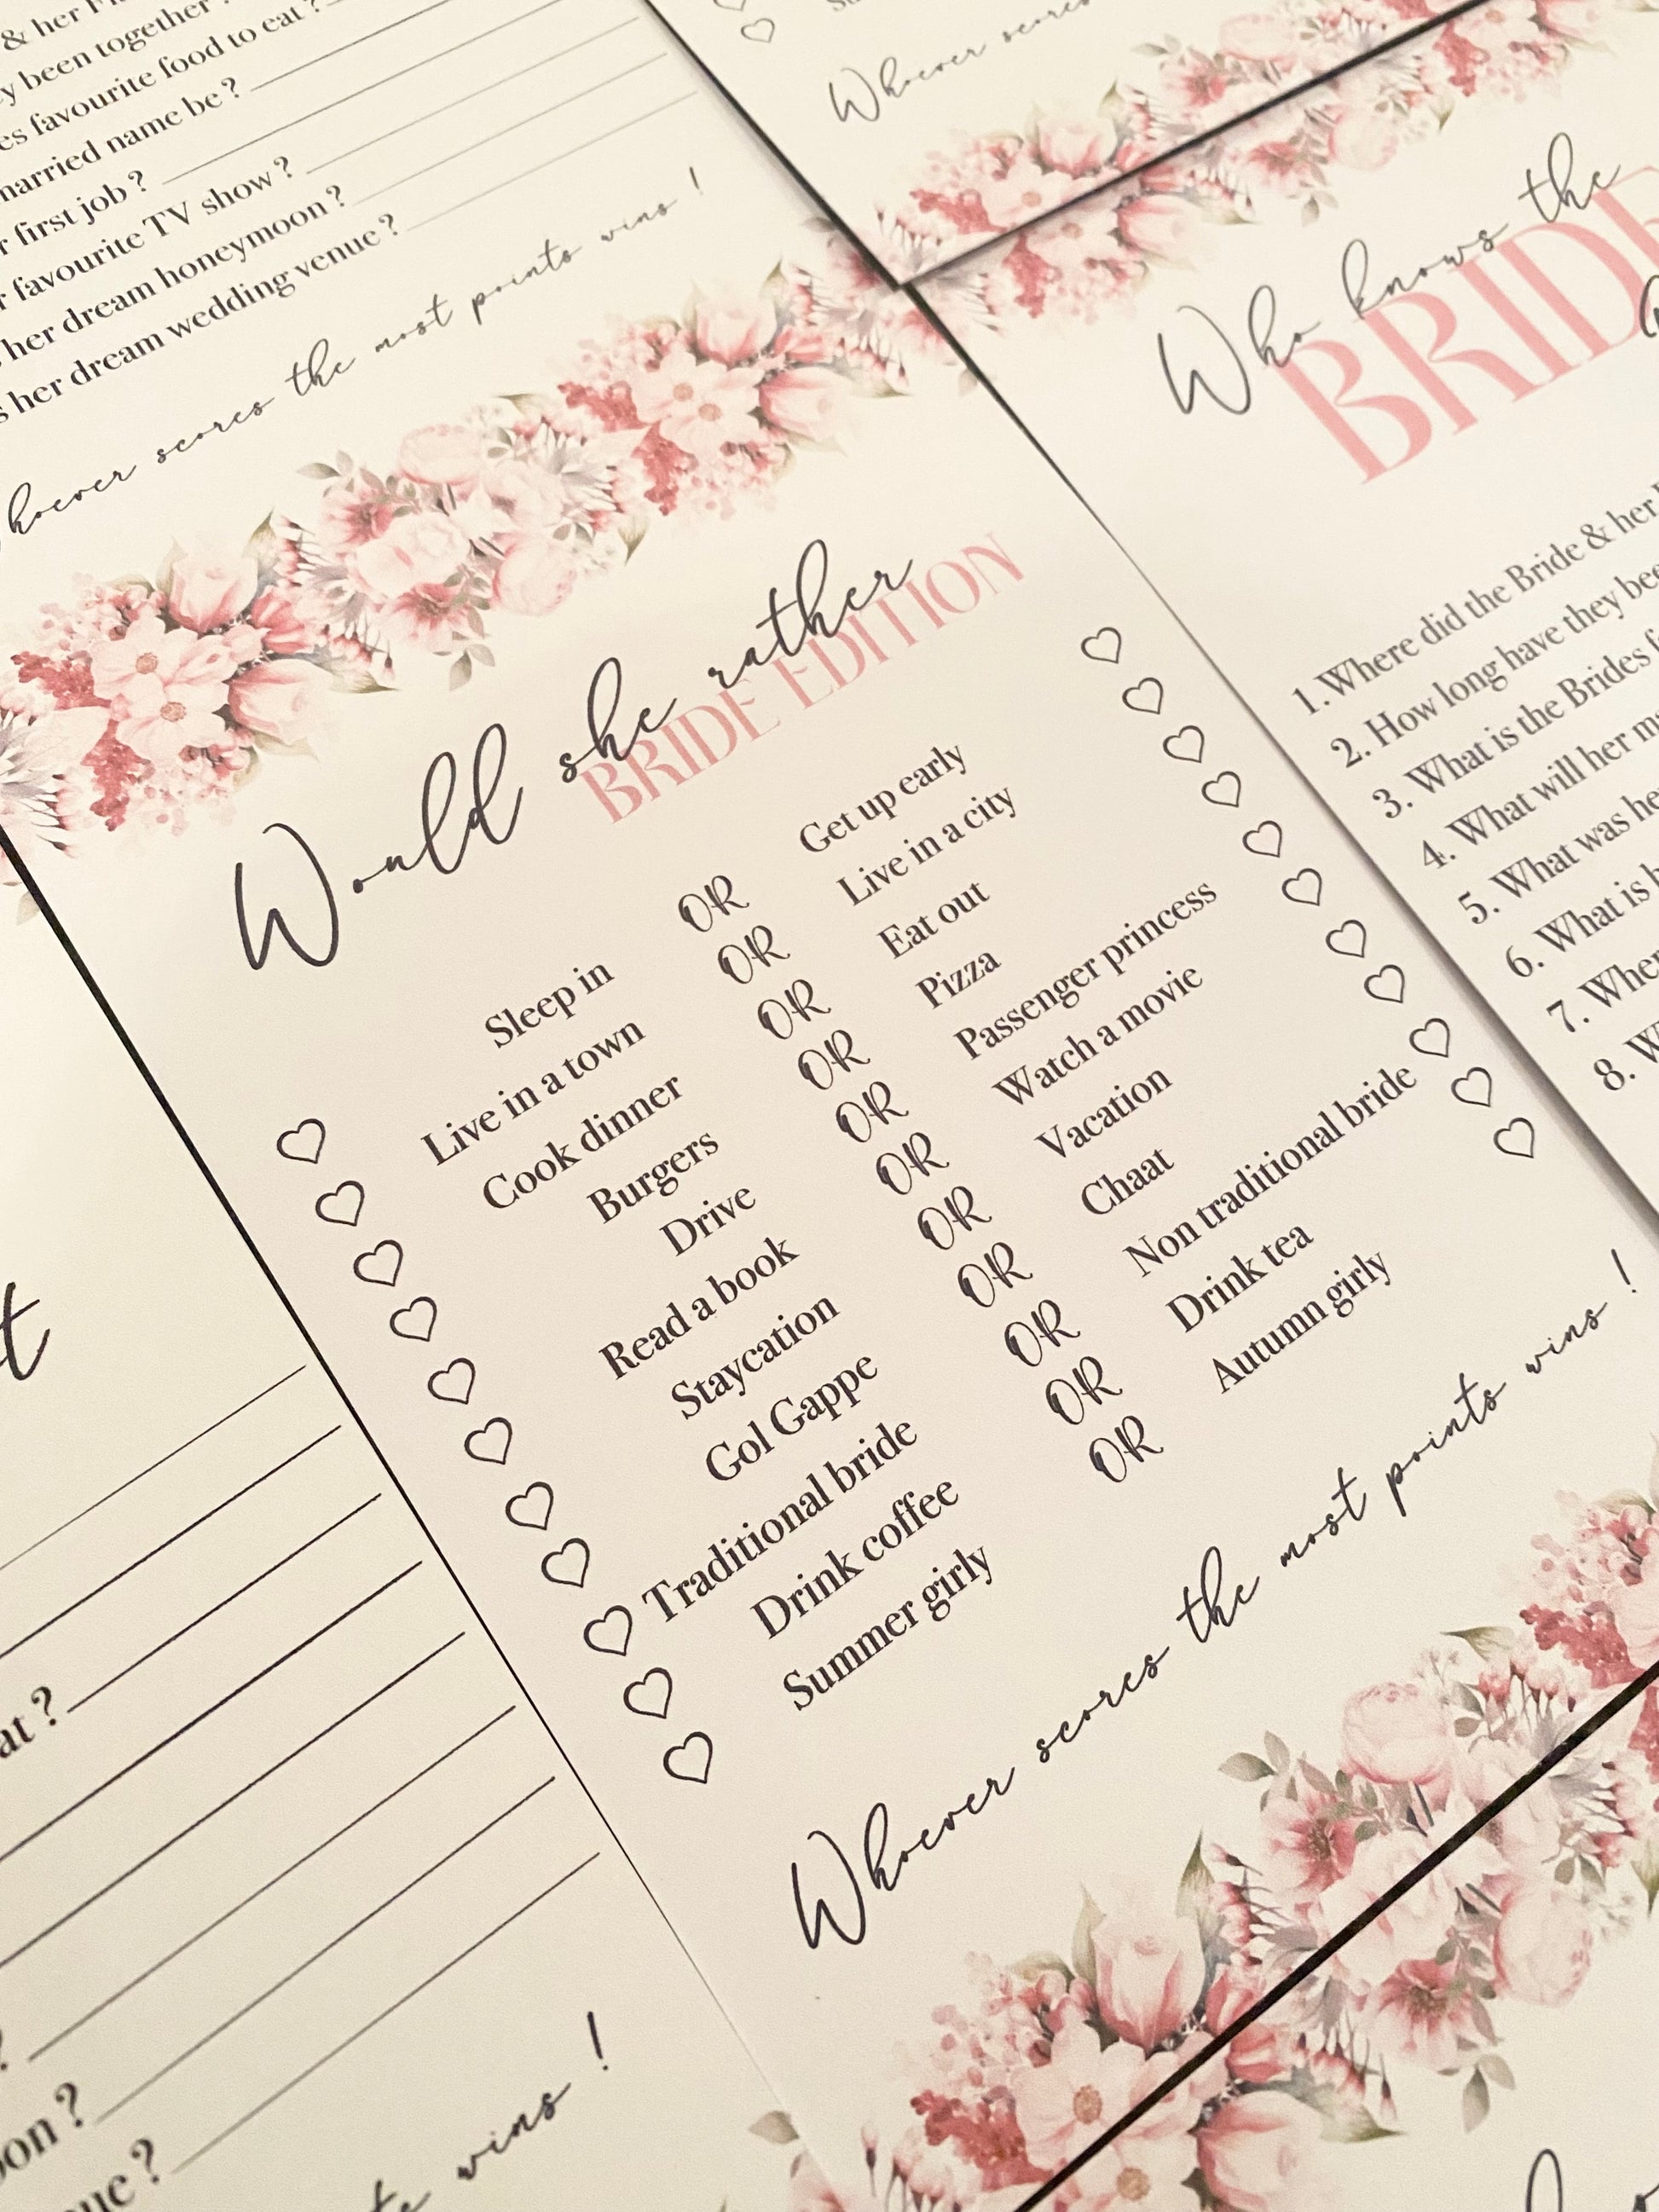 & her
y been together ?
es favourite food to eat ?
married name be ?
r first job ?
r favourite TV show ?
her dream honeymoon ?
s her dream wedding venue ?
hoever scores the most points wins !
Whoever scores
Would she rather
BRIDE EDITION
Sleep in OR Get up early
Live in a town OR Live in a city
Cook dinner OR Eat out
Burgers OR Pizza
Drive OR Passenger princess
Read a book OR Watch a movie
Staycation OR Vacation
Gol Gappe OR Chaat
Traditional bride OR Non traditional bride
Drink coffee OR Drink tea
Summer girly OR Autumn girly
Whoever scores the most points wins !
Who knows the
BRIDE
1. Where did the Bride & her
2. How long have they bee
3. What is the Brides f
4. What will her ma
5. What was he
6. What is h
7. Wher
8. W
t
at ?
?
oon ?
ue ?
wins !